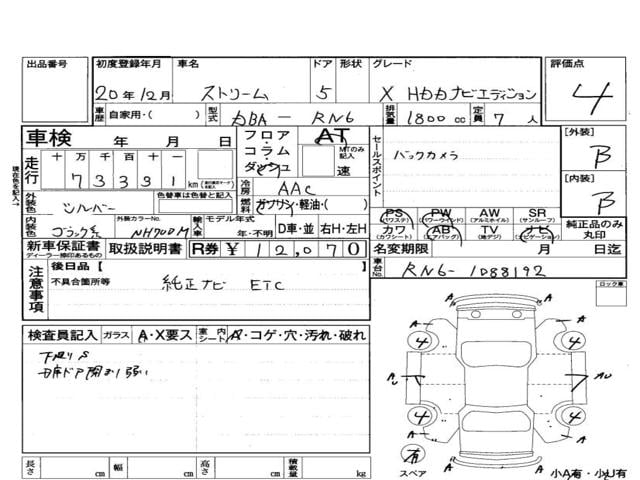 出品番号
初度登録年月 車名 ドア 形状 グレード 評価点
20年12月 ストリーム 5 X HDDナビエディション 4
車歴 自家用・( ) 型式 DBA-RN6 排気量 1800cc 定員 7人
車検 年 月 日 フロア・コラム・ダッシュ AT MTのみ記入 速
セールスポイント
バックカメラ
[外装] B
[内装] B
現在色を記入→
走行 十 万 千 百 十 一
73391 km
冷房 AAC
外装色 シルバー 色替車は色替と記入 燃料 ガソリン・軽油・( )
内装色 ブラック系 外装カラーNo. NH700M 輸入車 モデル年式 年・不明 D車・並 右H・左H
PS (パワステ) PW (パワーウインド) AW (アルミホイル) SR (サンルーフ)
カワ (カワシート) AB (エアバッグ) TV (地デジ) ナビ (ナビゲーション)
純正品のみ丸印
新車保証書 ディーラー捺印あるもの 取扱説明書 R券 ¥ 12,070 名変期限 月 日迄
車台No. RN6-1088192
注意事項 後日品【
不具合箇所等 純正ナビ ETC
ロック車
検査員記入 ガラス A・X要ス 室内シート A・コゲ・穴・汚れ・破れ
下廻りS
A
A
A
A
A
A
4
4
4
4
AU
有
スペア
小A有・小U有
長さ cm 幅 cm 高さ cm 積載量 kg